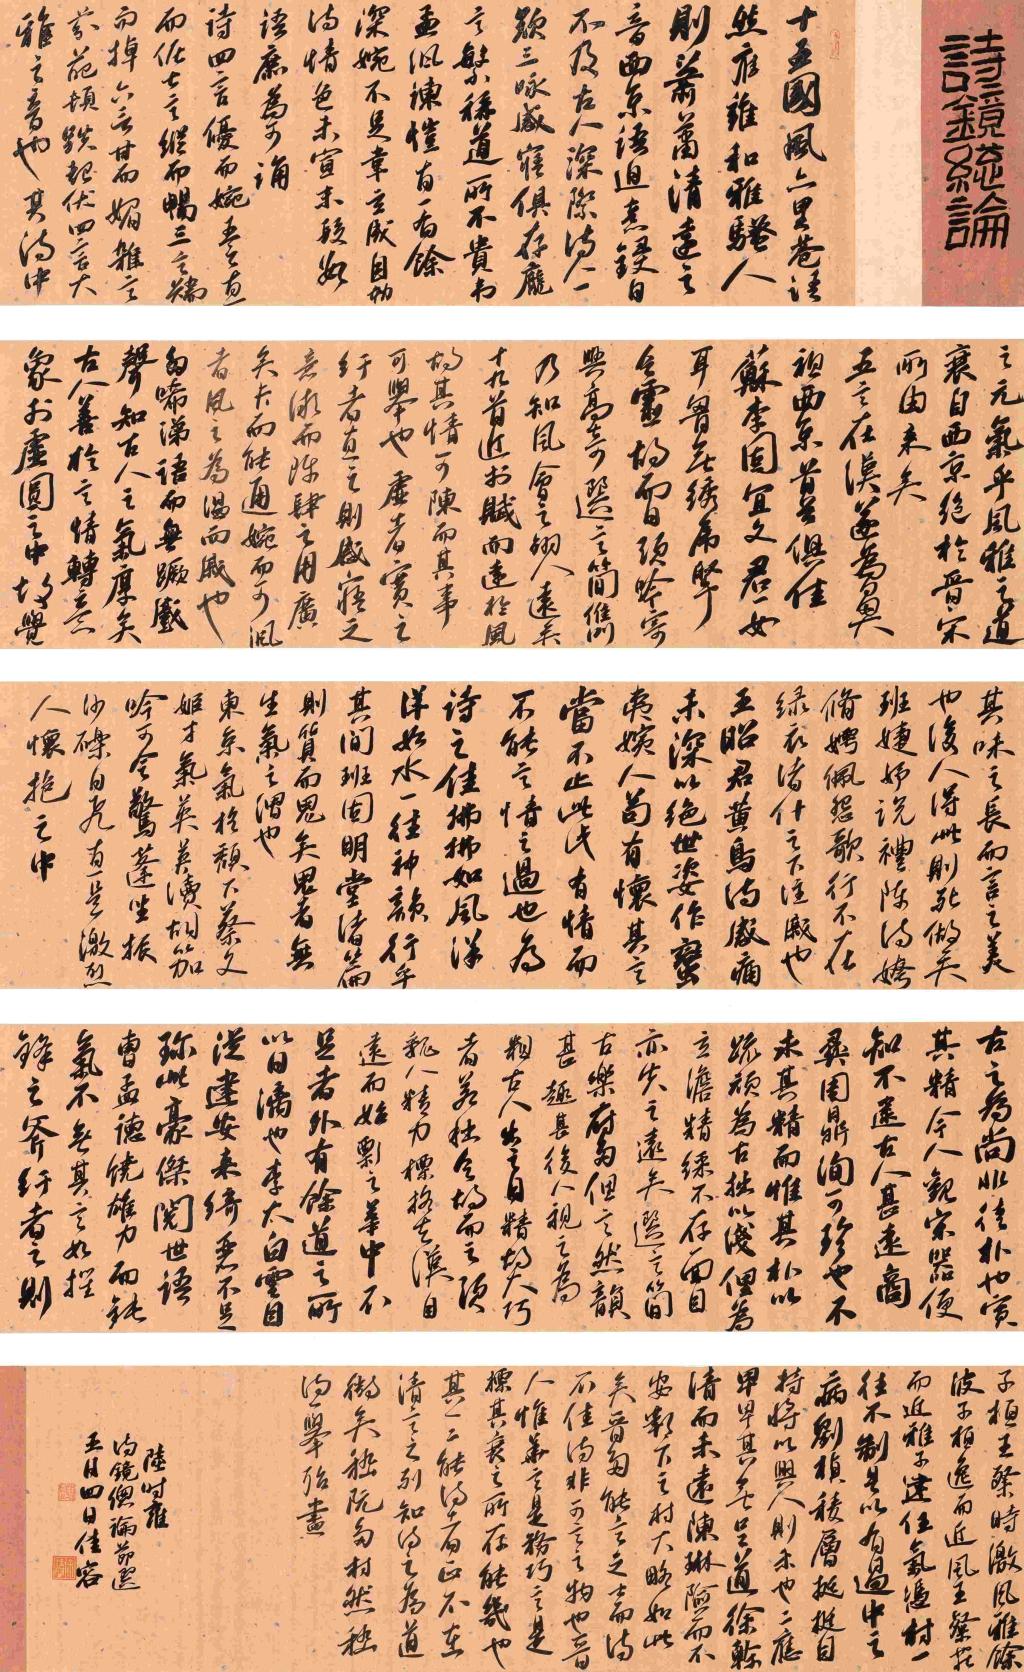 詩鏡總論
十五國風亦里巷語
然雍雍和雅騷人
則蕭蕭清遠之
音西京語迫意鋑自
不及古人深際詩一
歎三咏感寤俱存龐
言繁稱道所不貴韋
孟諷諫愷直有餘
深婉不足韋玄成自劾
詩情色未宣末段數
語庶為可誦
詩四言優而婉五言直
而倨七言縱而暢三言矯
而掉六言甘而媚雜言
芬葩頓跌起伏四言大
雅之音也其詩中
之元氣乎風雅之道
衰自西京絕於晉宋
所由來矣
五言在漢遂為鼻
祖西京首首俱佳
蘇李固宜文君一女
耳胸無繡虎腕
乏靈均而白頭吟寄
興高奇選言簡雋
乃知風會之翊人遠矣
十九首近於賦而遠於風
故其情可陳而其事
可舉也虛者實之
紆者直之則感寤之
意微而陳肆之用廣
矣夫而能通婉而可諷
者風之為也
語而無蹶蹙
聲知古人之氣厚矣
古人善於言情轉意
象於虛圓之中故覺
其味之長而言之美
也後人得此則死做矣
班婕妤說禮陳詩
脩嫮佩怨歌行不在
綠衣諸什之下
王昭君黃鳥詩感痛
未深以絕世姿作蠻
夷嬪人苟有懷其言
當不止此此有情而
不能言情之過也
詩之佳拂拂如風洋
洋如水一往神韻行乎
其間班固明堂諸篇
則質而鬼矣鬼者無
生氣之謂也
東京氣格頹下蔡文
姬才氣英英讀胡笳
吟可令驚蓬坐振
沙礫自飛直是激烈
人懷抱之中
古之為尚非徒朴也實
其精今人觀宗器便
知不逮古人甚遠商
彝周鼎洵可珍也不
求其精而惟其朴以
疏頑為古拙以淺俚為
玄澹精彩不存面目
亦失之遠矣
古樂府多俚言然韻
甚趣甚後人視之為
粗古人出之自精故大巧
者若拙
魏人精力標格去漢自
遠而始影之華中不
足者外有餘道之所
以日漓也李太白云自
從建安來綺麗不足
珍此豪傑閱世語
曹孟德饒雄力而鈍
氣不無其言如摧
鋒之斧
子桓王粲時激風雅餘
波子桓逸而近風王粲莊
而近雅子建任氣憑材一
往不制是以有過中之
病劉楨稜層挺挺自
持將以興人則未也二應
卑卑其無足道徐幹
清而未遠陳琳險而不
安鄴下之材大略如此
矣晉多能言之士而詩
不佳詩非可言之物也晉
人惟華言是務巧言是
標其衷之所存能幾也
其一二能詩者正不在
清言之列知詩之為道
微矣嵇阮多材然嵇
詩一舉殆盡
陸時雍
詩鏡總論節選
五月四日佳容